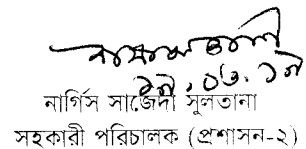 ১৯.০৬.১৯
নার্গিস সাজেদা সুলতানা
সহকারী পরিচালক (প্রশাসন-২)